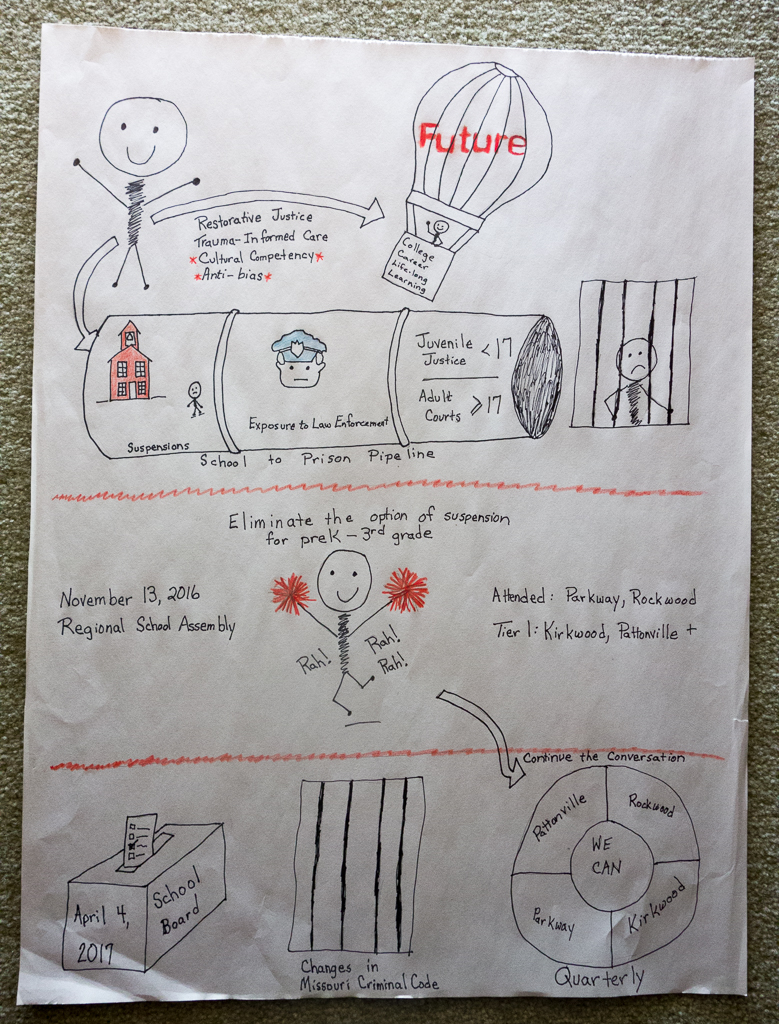 Future
Restorative Justice
Trauma-Informed Care
*Cultural Competency*
*Anti-bias*
College
Career
Life-long
Learning
Suspensions
Exposure to Law Enforcement
Juvenile
Justice
< 17
Adult
Courts
⩾ 17
School to Prison Pipeline
Eliminate the option of suspension
for preK - 3rd grade
November 13, 2016
Regional School Assembly
Rah!
Rah!
Rah!
Attended: Parkway, Rockwood
Tier 1: Kirkwood, Pattonville +
April 4,
2017
School
Board
Changes in
Missouri Criminal Code
Continue the Conversation
Pattonville
Rockwood
WE
CAN
Parkway
Kirkwood
Quarterly